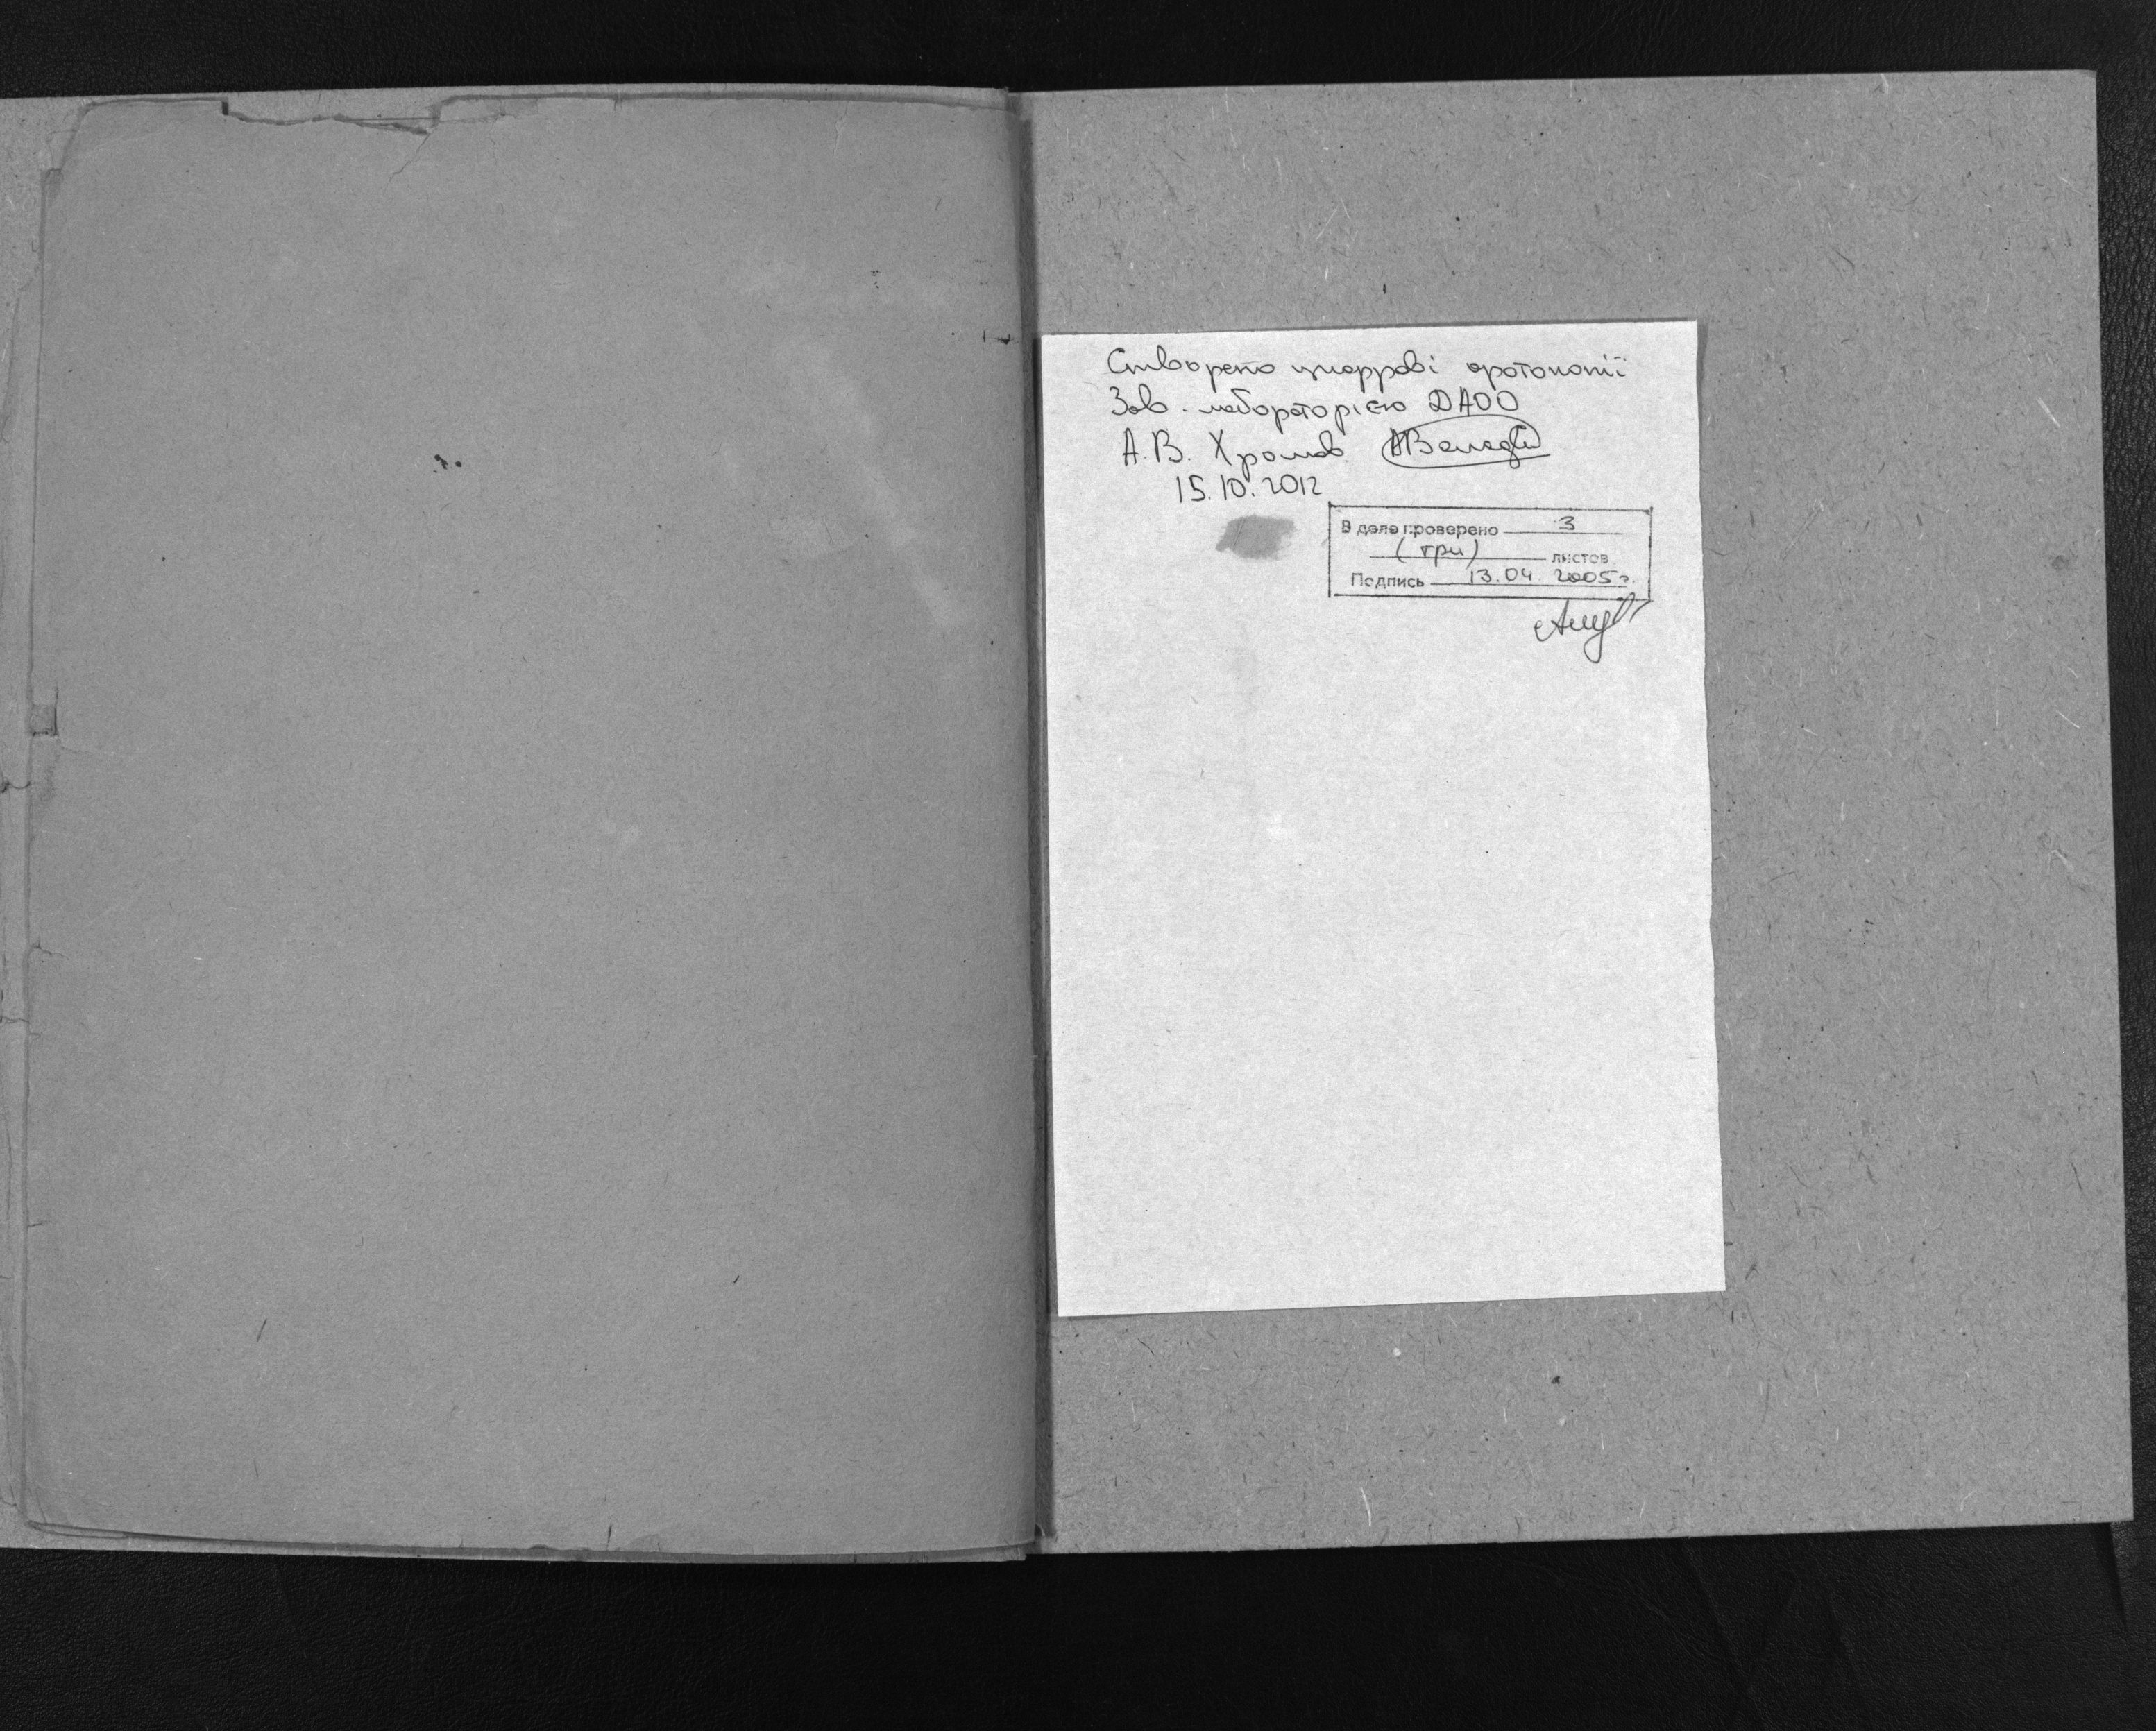 Створено цифрові фотокопії
Зав. лабораторією ДАОО
А.В. Хромов
15.10.2012
В деле проверено 3
(три) листов
Подпись 13.04 2005г.